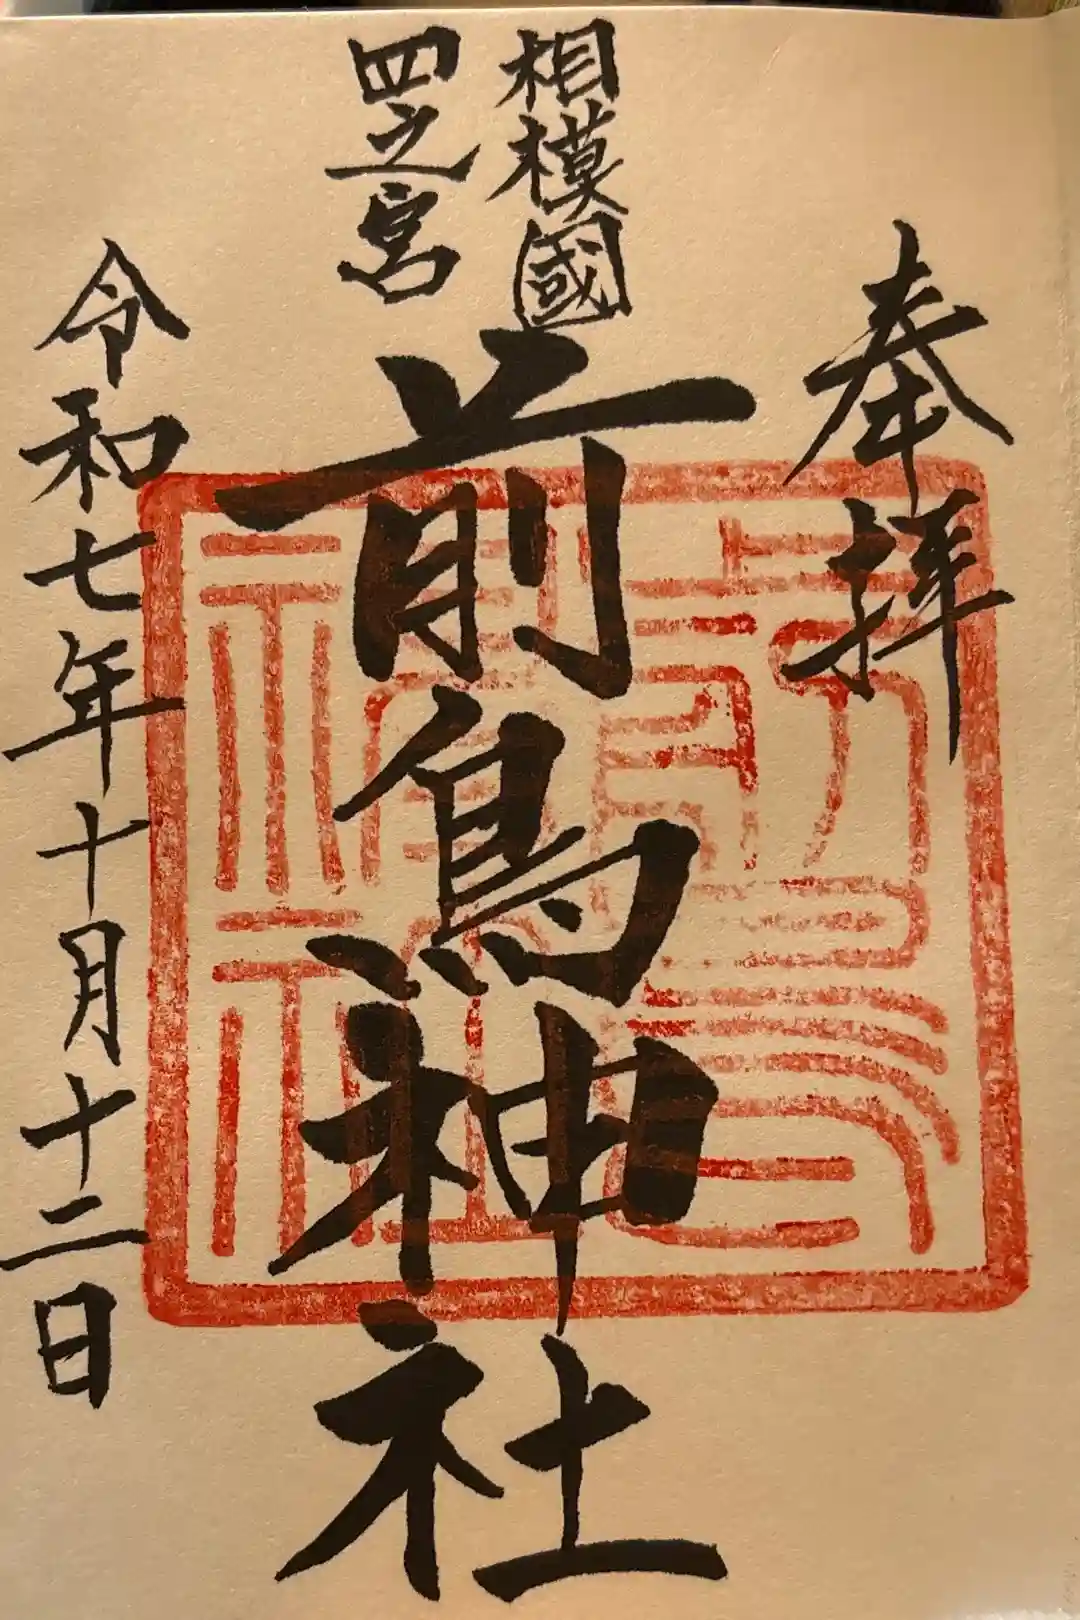 奉拝
相模國
四之宮
前鳥神社
令和七年十月十二日